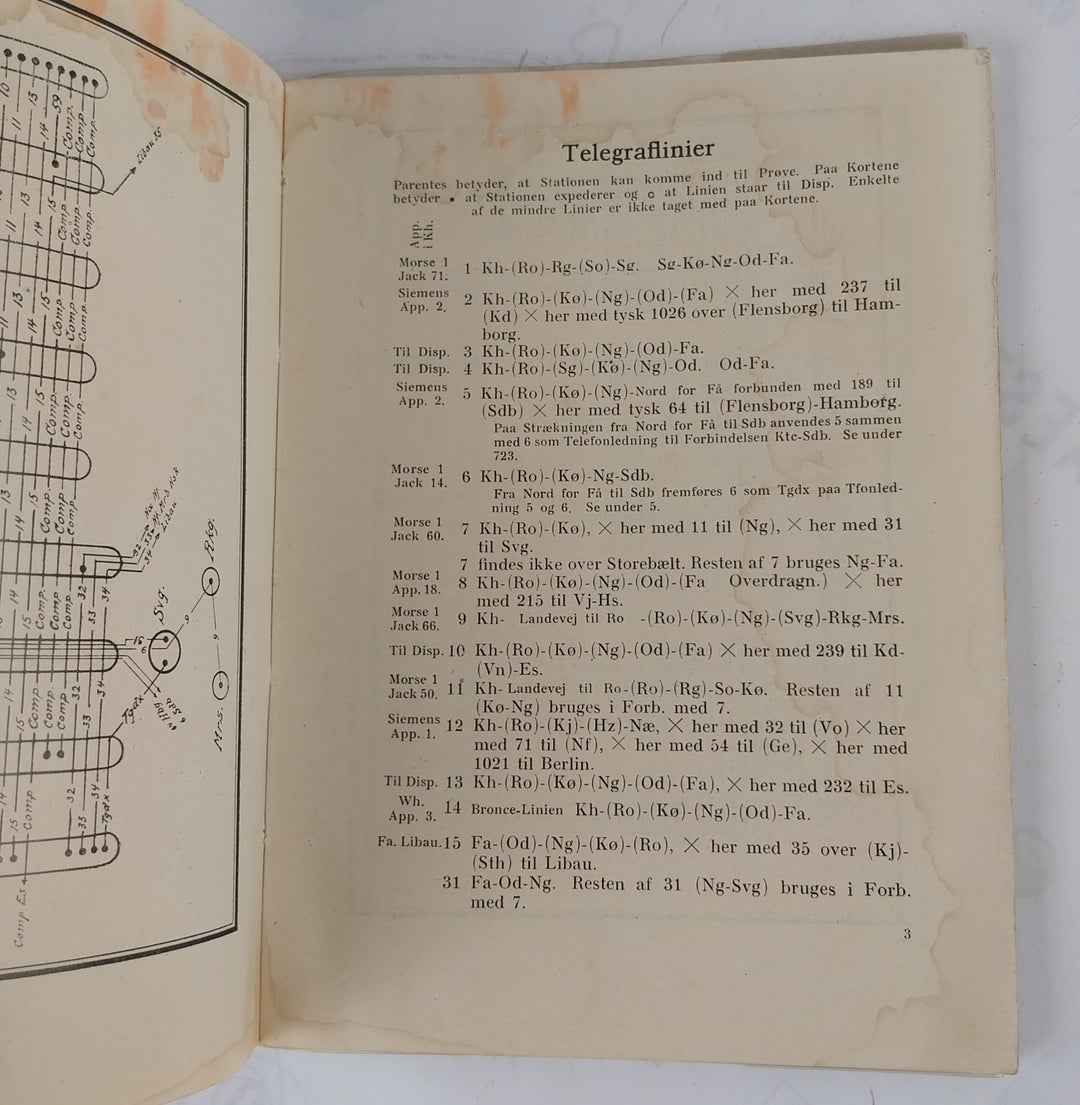 Telegraflinier
Parentes betyder, at Stationen kan komme ind til Prøve. Paa Kortene
betyder • at Stationen expederer og o at Linien staar til Disp. Enkelte
af de mindre Linier er ikke taget med paa Kortene.
App.
i Kh.
Morse 1
Jack 71.
1 Kh-(Ro)-Rg-(So)-Sg. Sg-Kø-Ng-Od-Fa.
Siemens
App. 2.
2 Kh-(Ro)-(Kø)-(Ng)-(Od)-(Fa) × her med 237 til
(Kd) × her med tysk 1026 over (Flensborg) til Ham-
borg.
Til Disp. 3 Kh-(Ro)-(Kø)-(Ng)-(Od)-Fa.
Til Disp. 4 Kh-(Ro)-(Sg)-(Kø)-(Ng)-Od. Od-Fa.
Siemens
App. 2.
5 Kh-(Ro)-(Kø)-(Ng)-Nord for Få forbunden med 189 til
(Sdb) × her med tysk 64 til (Flensborg)-Hamborg.
Paa Strækningen fra Nord for Få til Sdb anvendes 5 sammen
med 6 som Telefonledning til Forbindelsen Ktc-Sdb. Se under
723.
Morse 1
Jack 14.
6 Kh-(Ro)-(Kø)-Ng-Sdb.
Fra Nord for Få til Sdb fremføres 6 som Tgdx paa Tfonled-
ning 5 og 6. Se under 5.
Morse 1
Jack 60.
7 Kh-(Ro)-(Kø), × her med 11 til (Ng), × her med 31
til Svg.
7 findes ikke over Storebælt. Resten af 7 bruges Ng-Fa.
Morse 1
App. 18.
8 Kh-(Ro)-(Kø)-(Ng)-(Od)-(Fa Overdragn.) × her
med 215 til Vj-Hs.
Morse 1
Jack 66.
9 Kh- Landevej til Ro -(Ro)-(Kø)-(Ng)-(Svg)-Rkg-Mrs.
Til Disp. 10 Kh-(Ro)-(Kø)-(Ng)-(Od)-(Fa) × her med 239 til Kd-
(Vn)-Es.
Morse 1
Jack 50.
11 Kh- Landevej til Ro-(Ro)-(Rg)-So-Kø. Resten af 11
(Kø-Ng) bruges i Forb. med 7.
Siemens
App. 1.
12 Kh-(Ro)-(Kj)-(Hz)-Næ, × her med 32 til (Vo) × her
med 71 til (Nf), × her med 54 til (Ge), × her med
1021 til Berlin.
Til Disp. 13 Kh-(Ro)-(Kø)-(Ng)-(Od)-(Fa), × her med 232 til Es.
Wh.
App. 3.
14 Bronce-Linien Kh-(Ro)-(Kø)-(Ng)-(Od)-Fa.
Fa. Libau. 15 Fa-(Od)-(Ng)-(Kø)-(Ro), × her med 35 over (Kj)-
(Sth) til Libau.
31 Fa-Od-Ng. Resten af 31 (Ng-Svg) bruges i Forb.
med 7.
3
Libau 35
Svg.
Rkg.
Mrs.
Tgdx
Comp Es